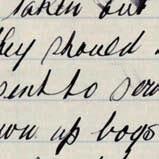 taken out
they should
sent to
up boys